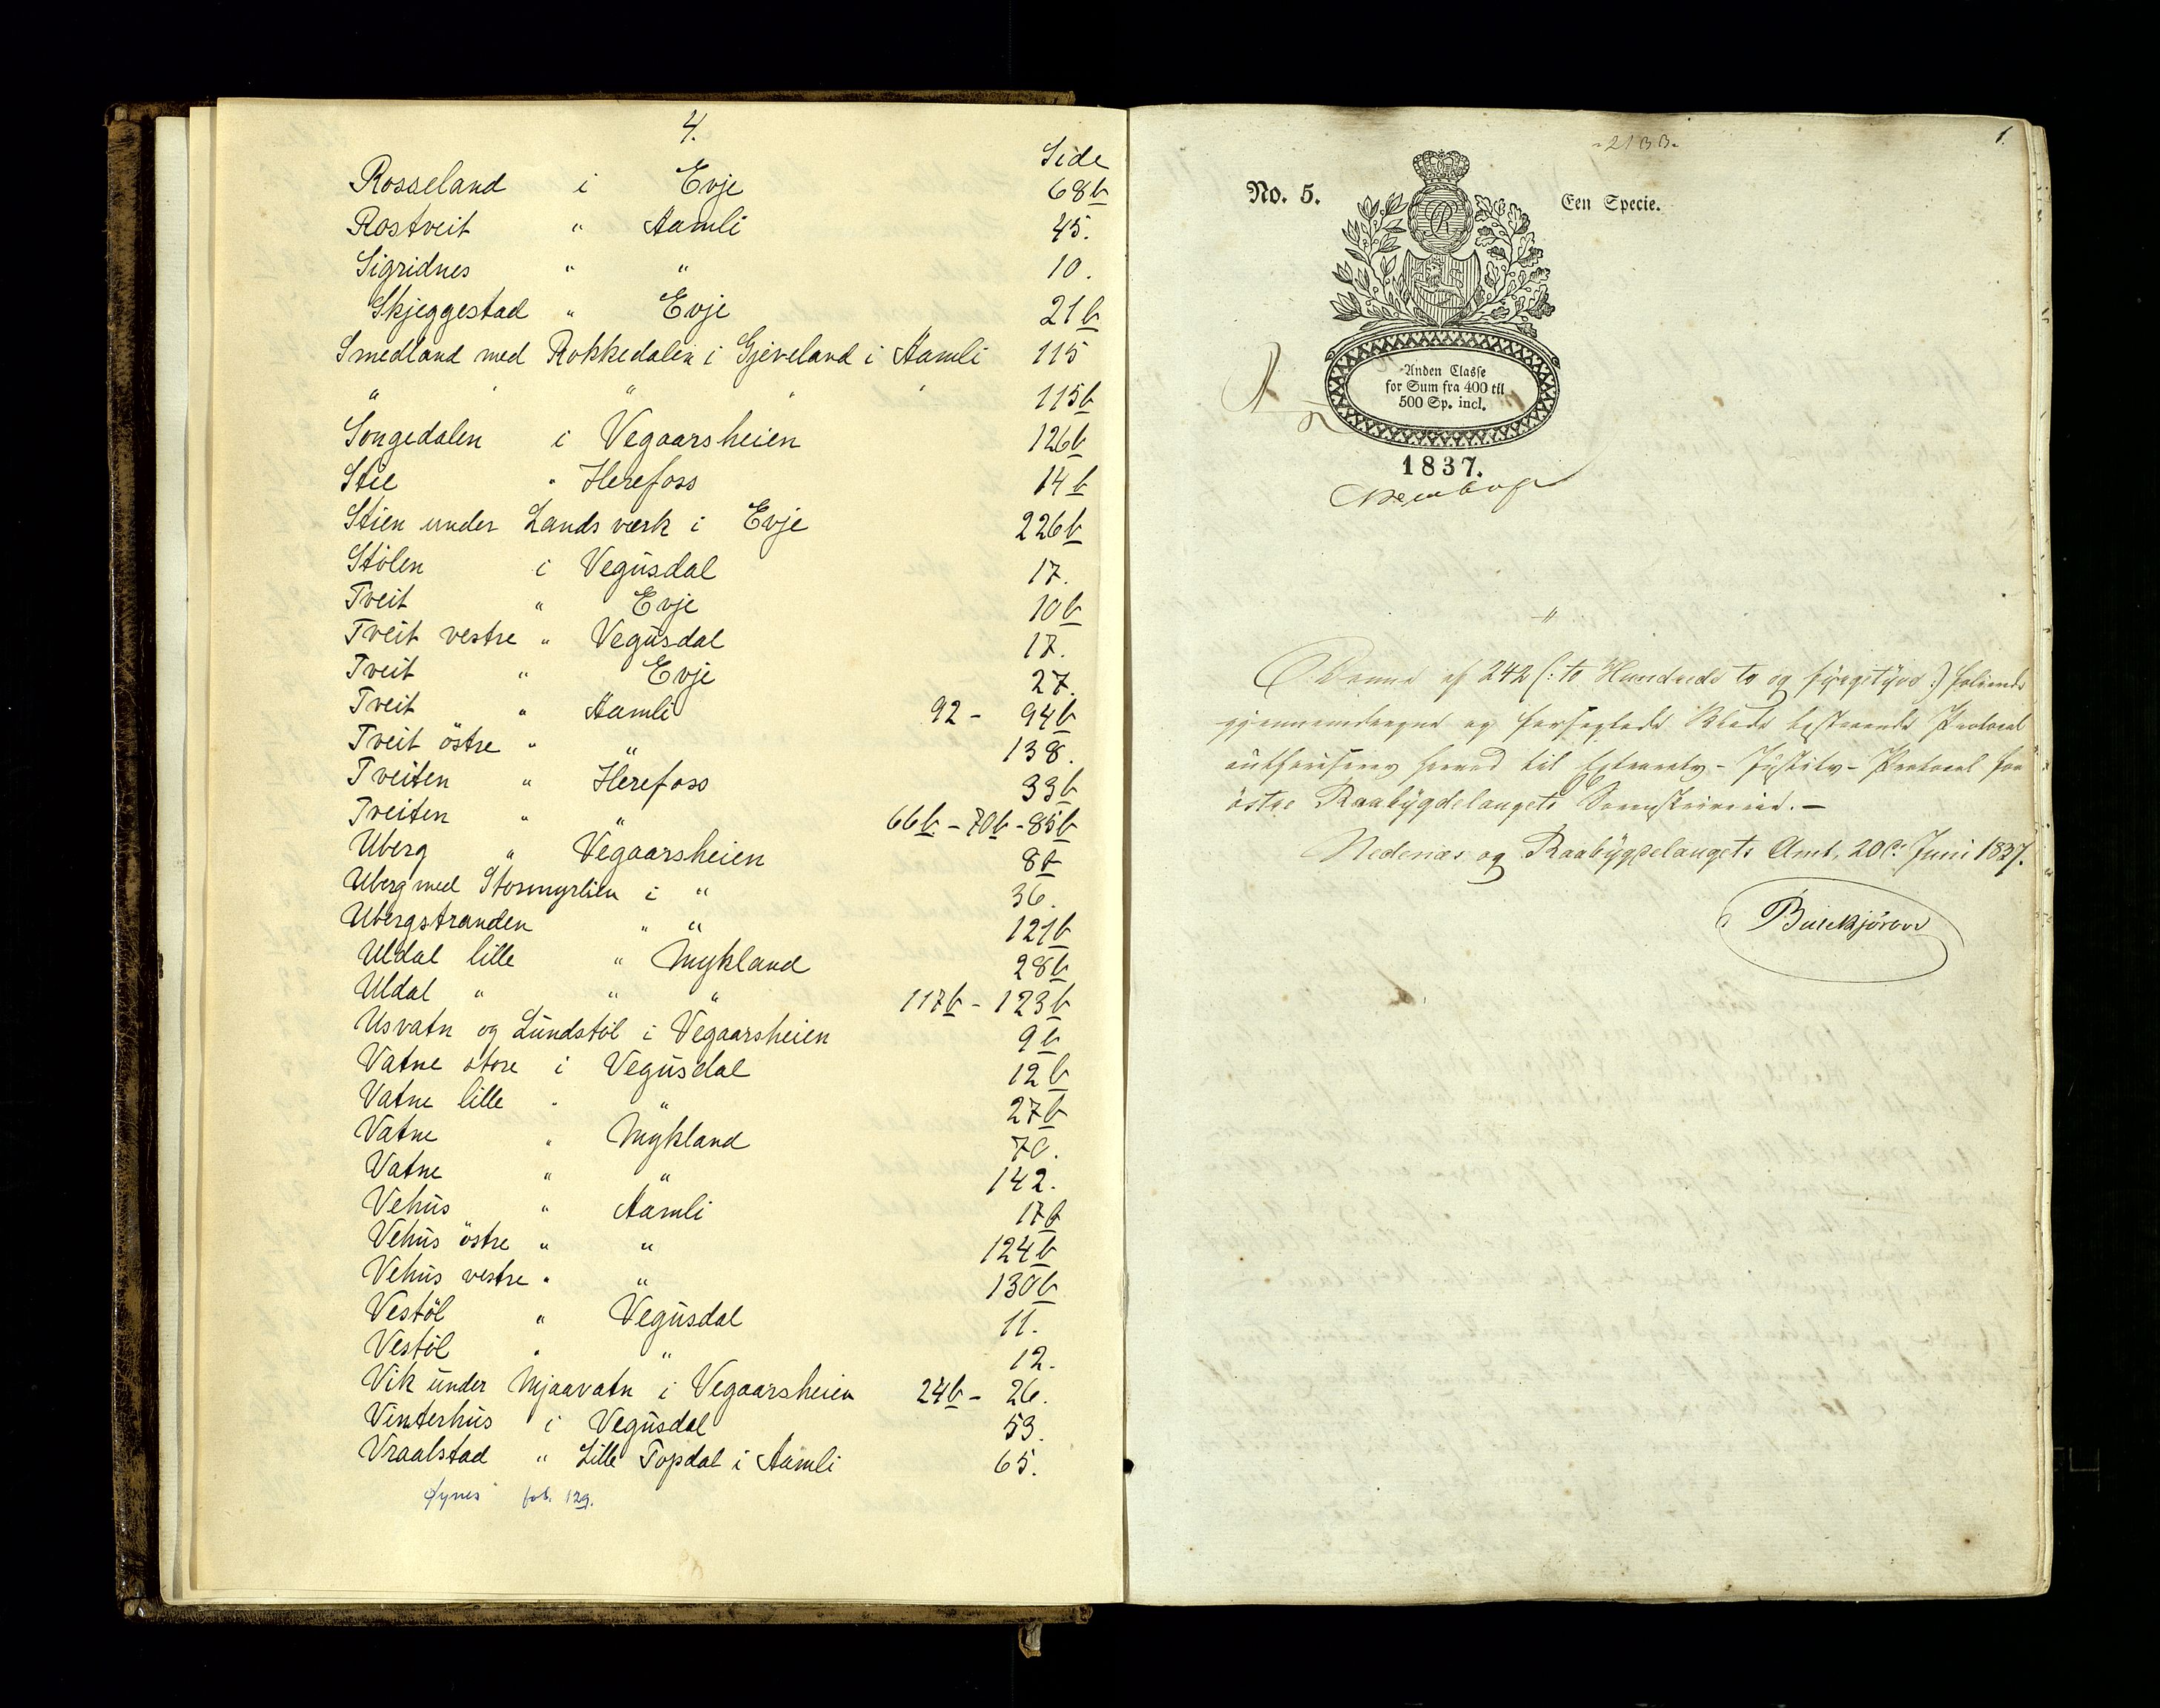 4.
Side
Rosseland i Evje 68b
Rostveit " Aamli 45.
Sigridnes " " 10.
Skjeggestad " Evje 21b
Smedland med Rokkedalen i Gjeveland i Aamli 115
" " " " " 115b
Songedalen i Vegaarsheien 126b
Stie " Herefoss 14b
Stien under Landsværk i Evje 226b
Stölen i Vegusdal 17.
Tveit " Evje 10b
Tveit vestre " Vegusdal 17.
Tveit " Evje 27.
Tveit " Aamli 92 - 94b
Tveit östre " " 138.
Tveiten " Herefoss 33b
Tveiten " " 66b - 70b - 85b
Uberg " Vegaarsheien 8b
Uberg med Stormyrlien i " 36.
Ubergstranden " " 121b
Uldal lille " Mykland 28b
Uldal " " " 117b - 123b
Usvatn og Lundstöl i Vegaarsheien 9b
Vatne store i Vegusdal 12b
Vatne lille " " 27b
Vatne " Mykland 70.
Vatne " " 142.
Vehus " Aamli 17b
Vehus östre " " 124b
Vehus vestre " " 130b
Vestöl " Vegusdal 11.
Vestöl " " 12.
Vik under Mjaavatn i Vegaarsheien 24b - 26.
Vinterhus i Vegusdal 53.
Vraalstad " Lille Topdal i Aamli 65.
Øynes fol. 129.
1.
-2133-
No. 5.
Een Specie.
Anden Classe
for Sum fra 400 til
500 Sp. incl.
1837.
Denne af 242 (: to Hundrede to og fyrgetyve :) folierede
gjennemdragne og forseglede Blade bestaaende Protocol
authoriseres herved til Extrarets-Justits-Protocol for
östre Raabygdelaugets Sorenskriveri. —
Nedenæs og Raabygdelaugets Amt, 20de Juni 1837.